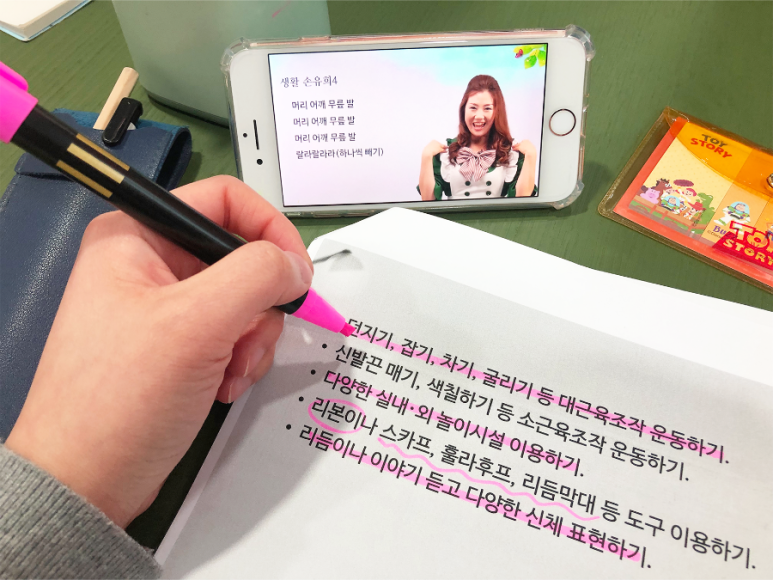 생활 손유희4
머리 어깨 무릎 발
머리 어깨 무릎 발
머리 어깨 무릎 발
랄라랄라라(하나씩 빼기)
TOY
STORY
TOY
STORY
던지기, 잡기, 차기, 굴리기 등 대근육조작 운동하기.
• 신발끈 매기, 색칠하기 등 소근육조작 운동하기.
• 다양한 실내·외 놀이시설 이용하기.
• 리본이나 스카프, 훌라후프, 리듬막대 등 도구 이용하기.
• 리듬이나 이야기 듣고 다양한 신체 표현하기.